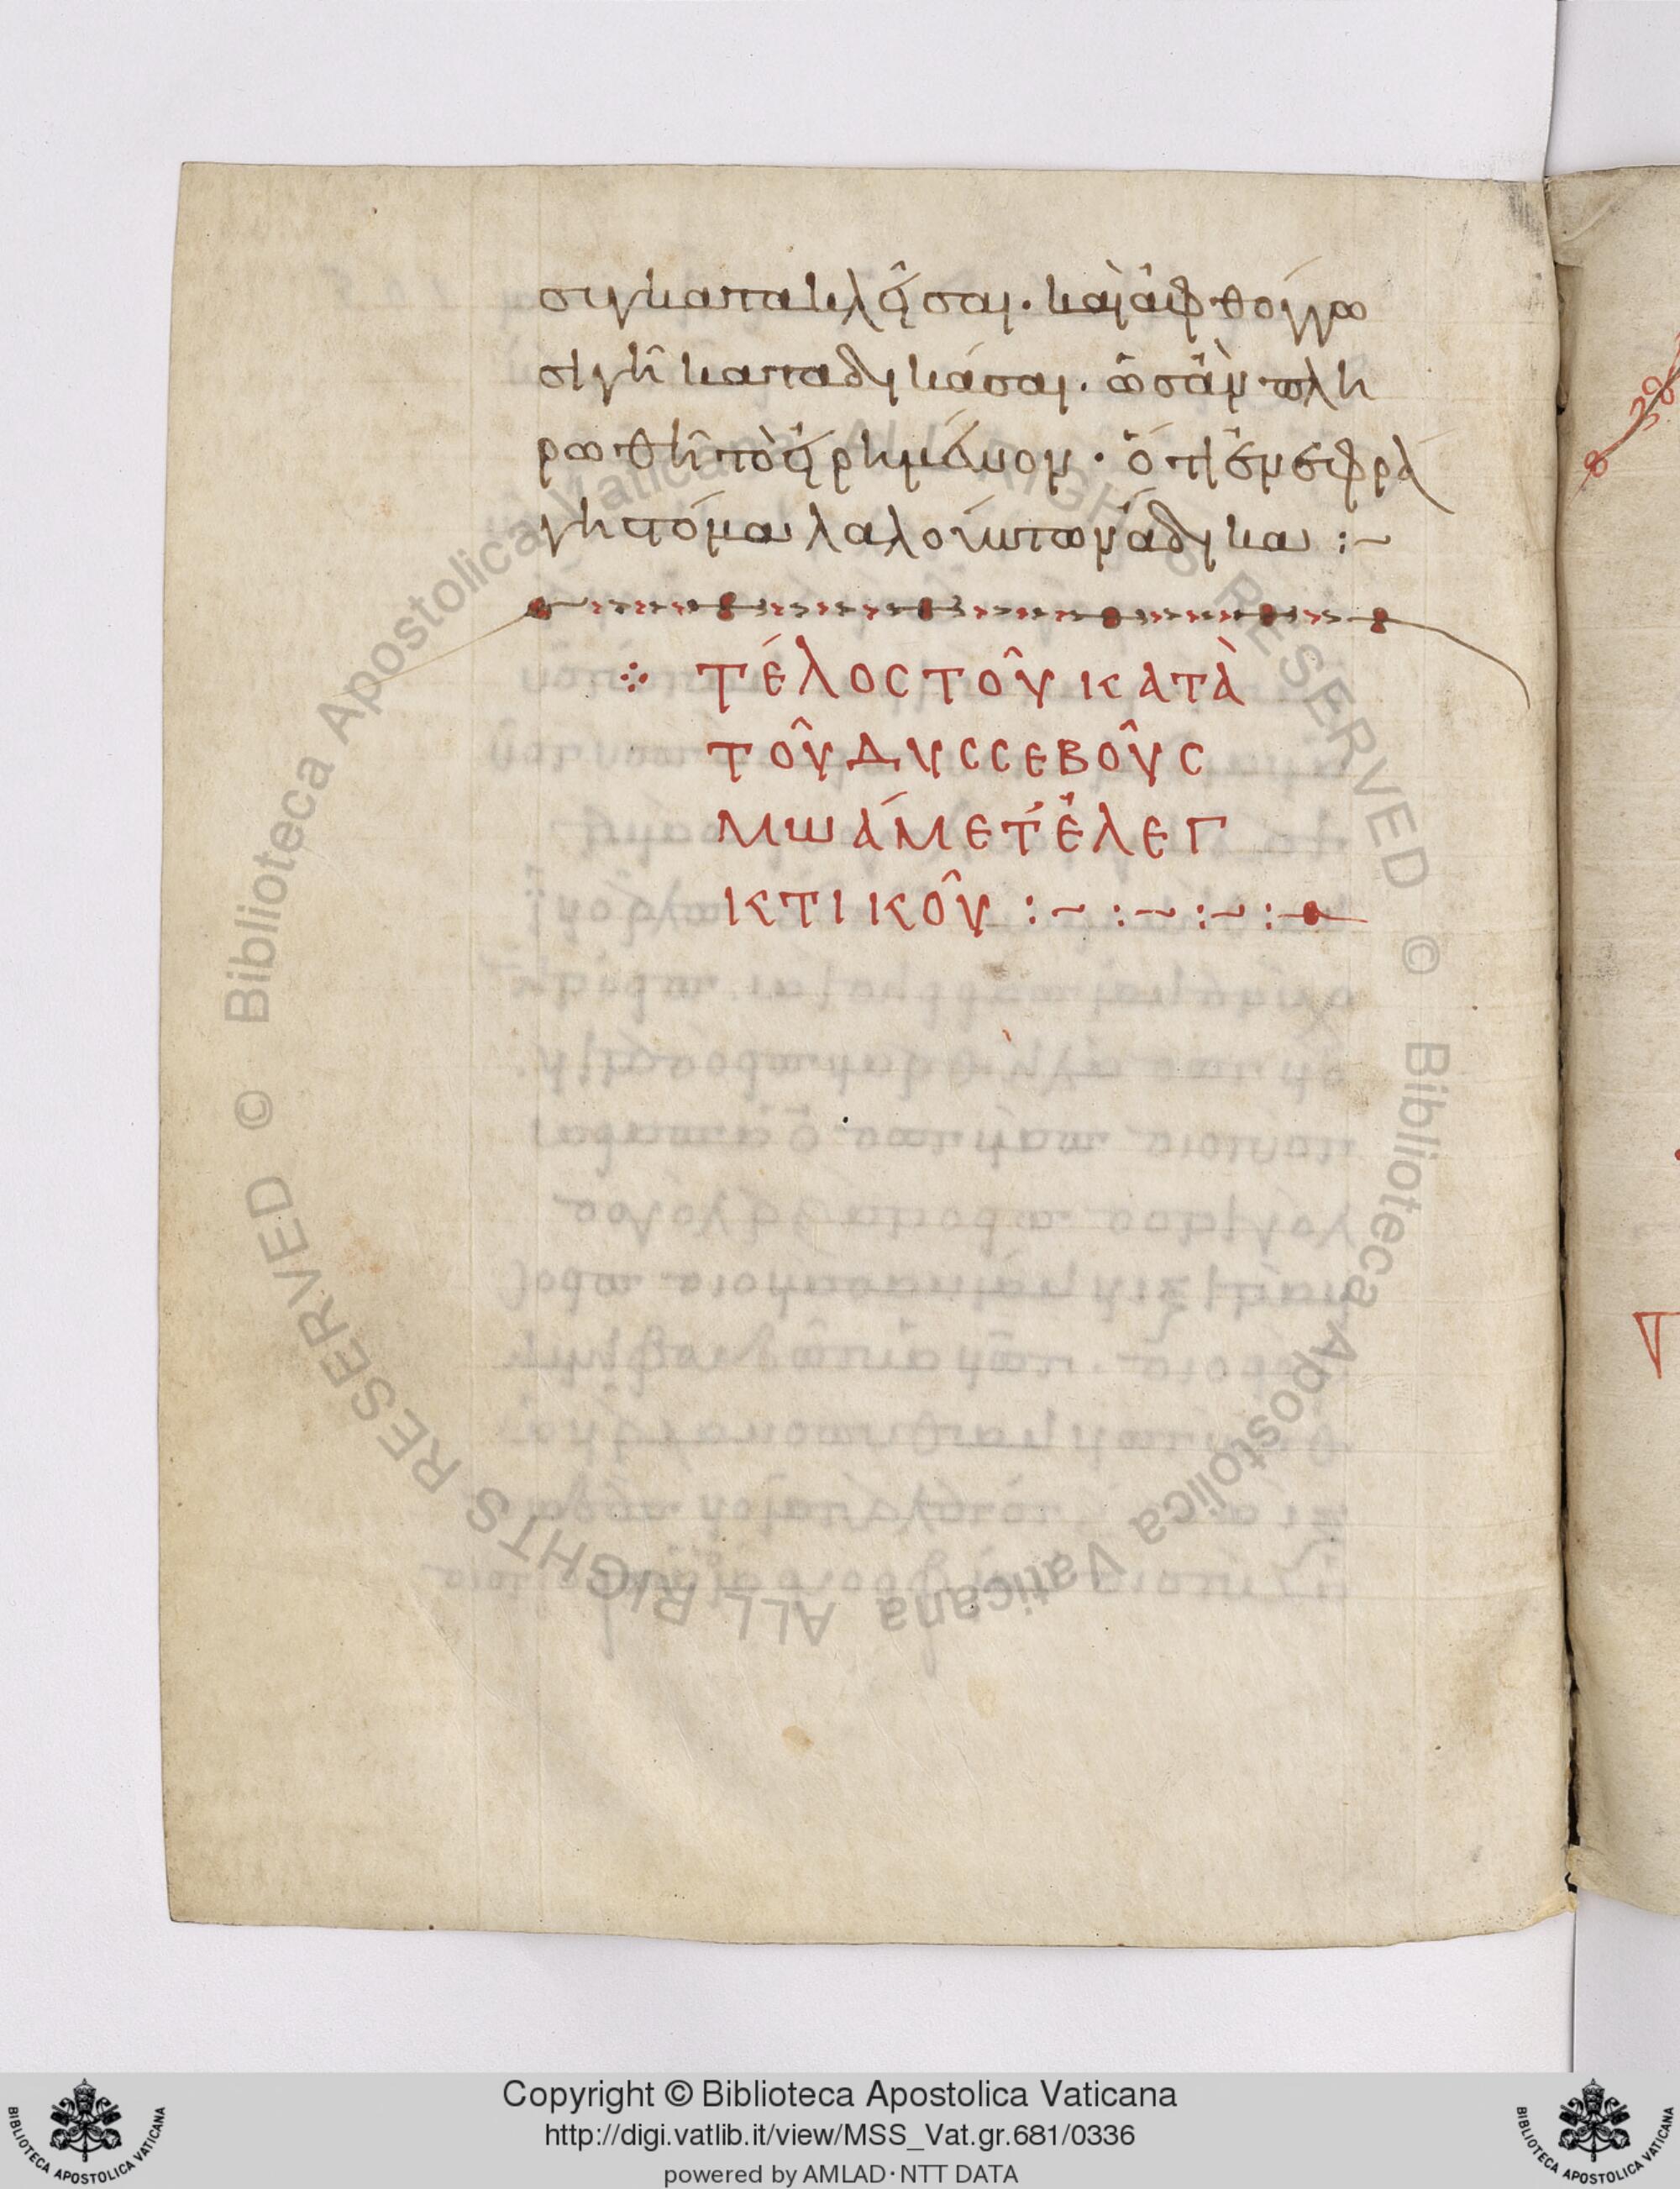 σιν κατακλεῖσαι· καὶ ἀφθόγγω
σιγῆ καταδικάσαι· ὡς ἂν πλη
ρωθῆ τὸ εἰρημένον· ὅτι ἐνεφρά
γη στόμα λαλούντων ἄδικα :~
ΤΈΛΟC ΤΟῦ ΚΑΤᾺ
ΤΟῦ ΔΥCCΕΒΟῦC
ΜΩΆΜΕΤ ἘΛΕΓ
ΚΤΙΚΟῦ :~ :~ :~ :
© Biblioteca Apostolica Vaticana ALL RIGHTS RESERVED © Biblioteca Apostolica Vaticana ALL RIGHTS RESERVED
Copyright © Biblioteca Apostolica Vaticana
http://digi.vatlib.it/view/MSS_Vat.gr.681/0336
powered by AMLAD·NTT DATA
BIBLIOTECA APOSTOLICA VATICANA
BIBLIOTECA APOSTOLICA VATICANA